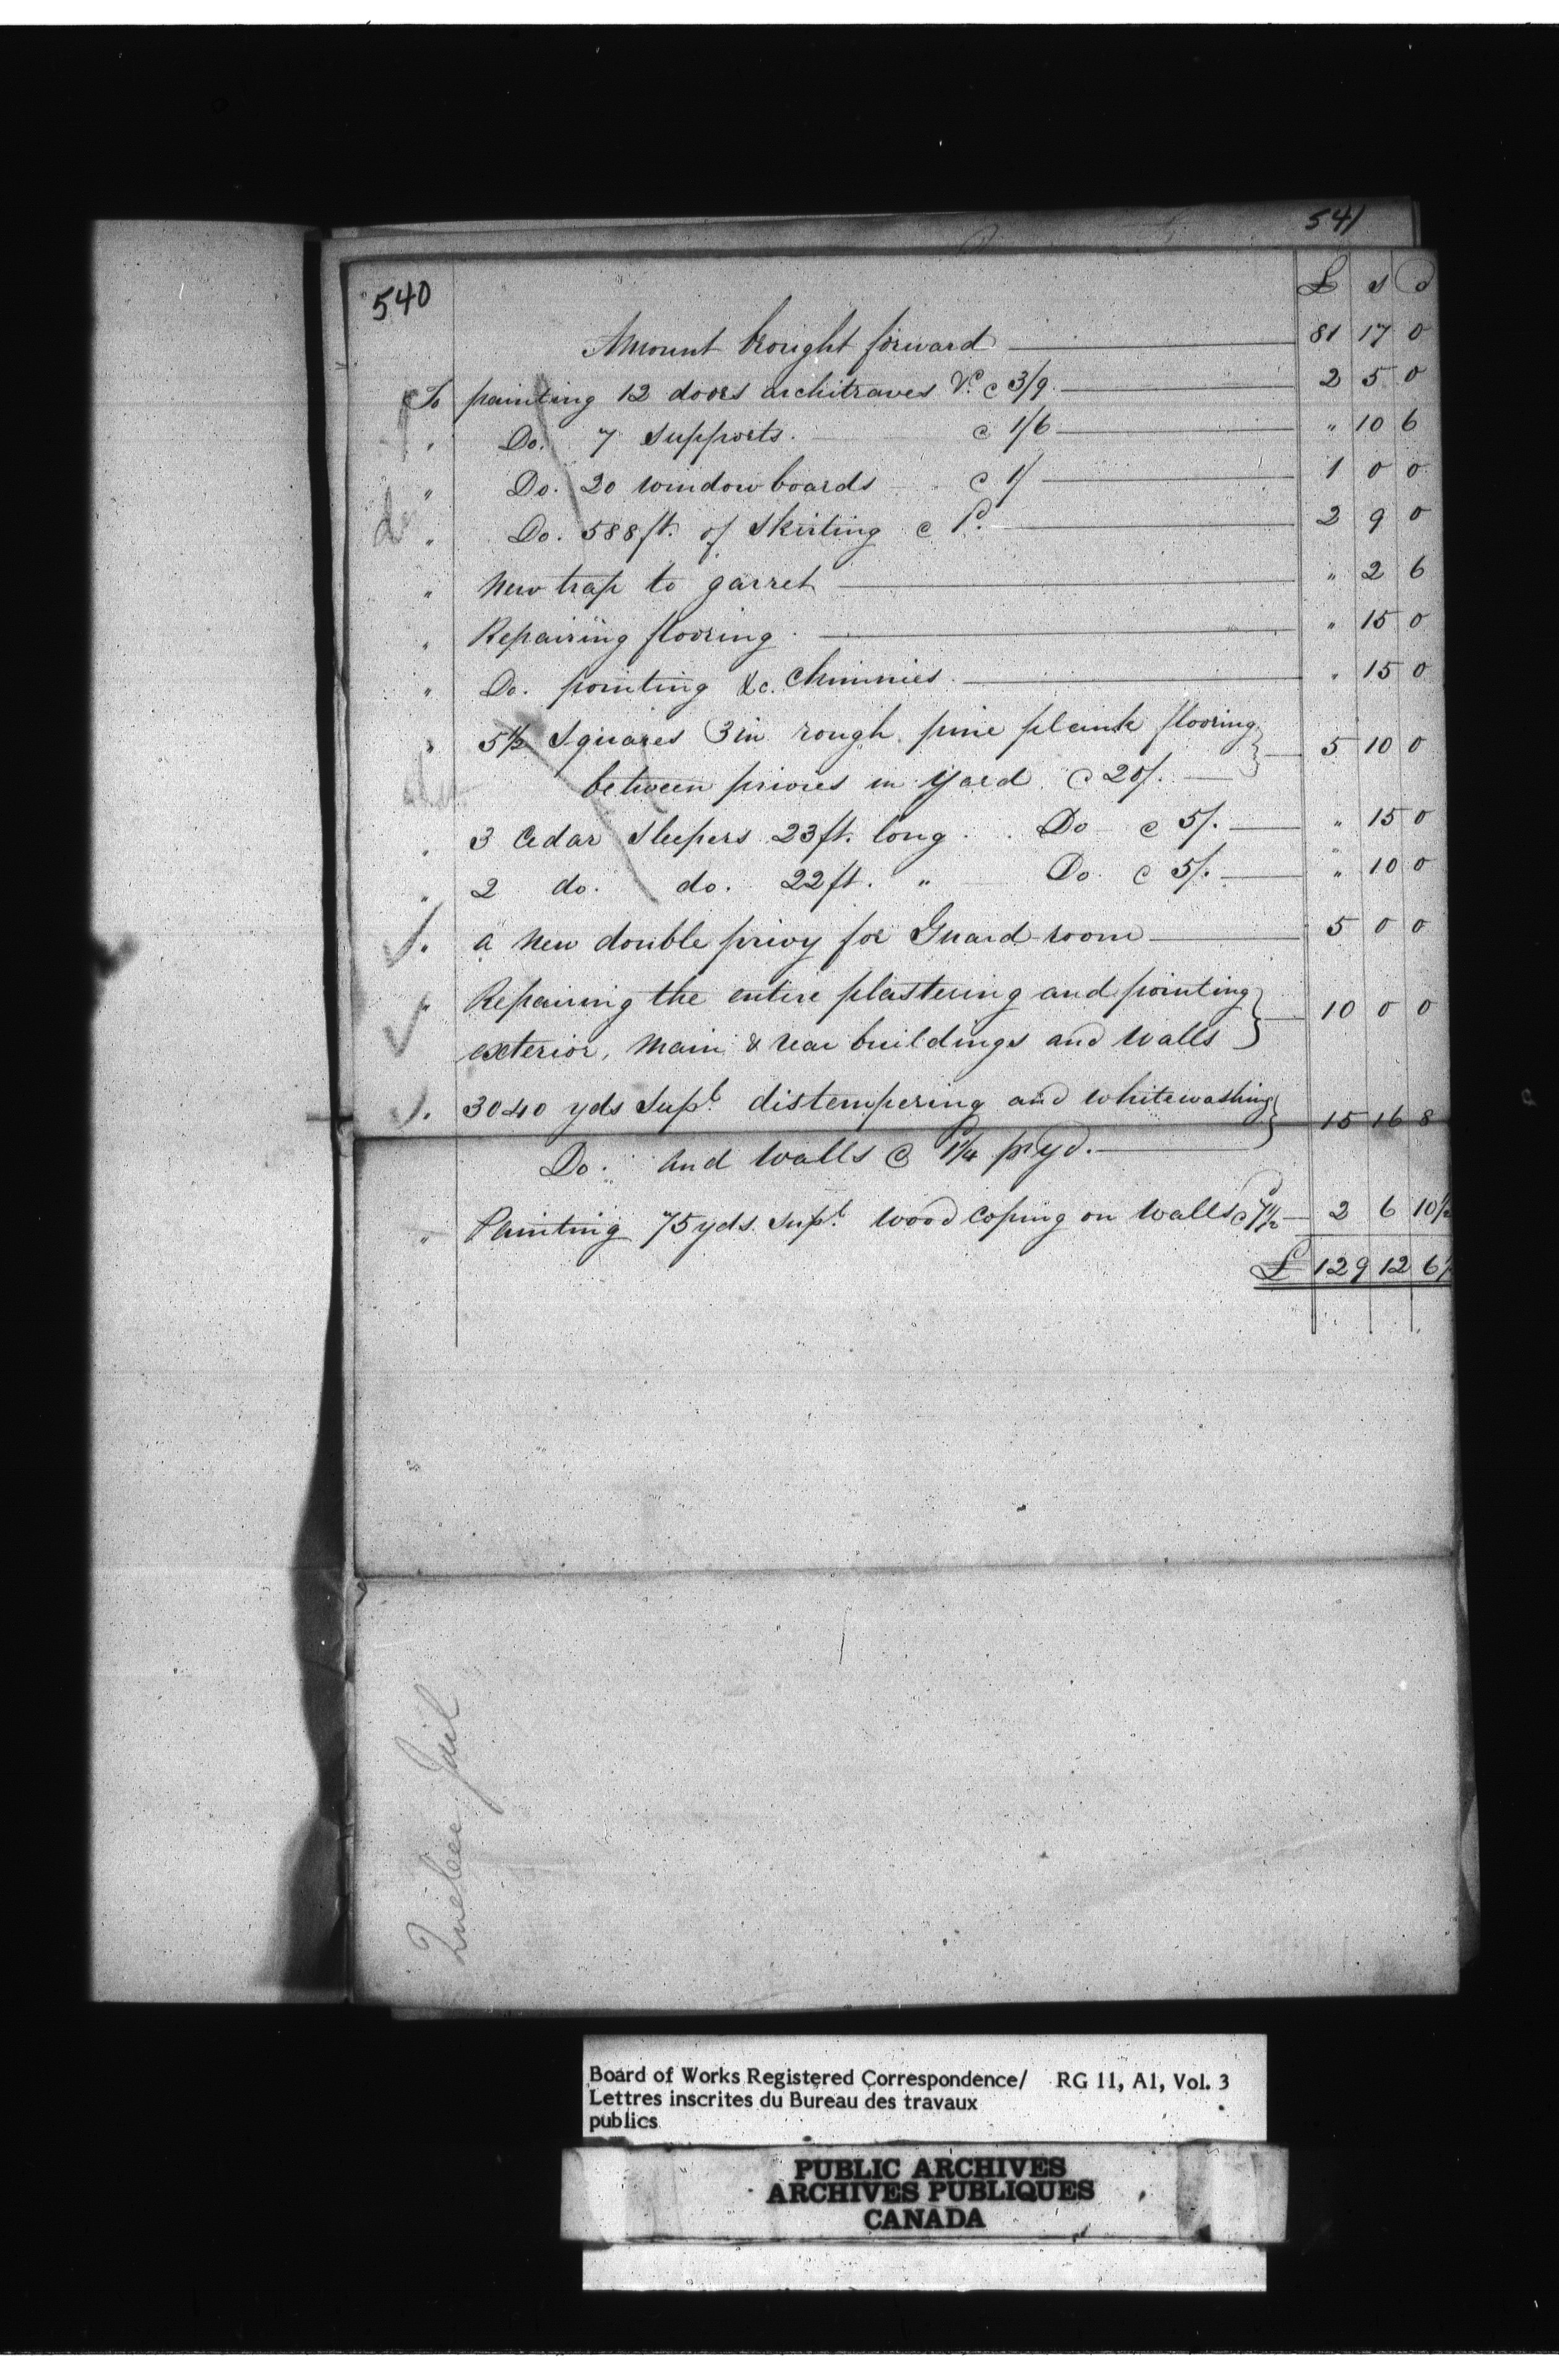 541
540
£ s d
Amount brought forward 81 17 0
To painting 12 doors architraves &c @ 3/9 2 5 0
" Do. 7 supports. @ 1/6 " 10 6
" Do. 20 window boards @ 1/ 1 0 0
" Do. 588 ft. of Skirting @ 1d. 2 9 0
" New trap to garret " 2 6
" Repairing flooring " 15 0
" Do. pointing &c. Chimnies " 15 0
" 5½ Squares 3 in rough pine plank flooring
between privies in yard @ 20/. 5 10 0
" 3 Cedar Sleepers 23 ft. long Do @ 5/. " 15 0
" 2 do. do. 22 ft. " Do. @ 5/. " 10 0
" a New double privy for Guard room 5 0 0
" Repairing the entire plastering and pointing
exterior, Main & rear buildings and Walls 10 0 0
" 3040 yds Supl. distempering and whitewashing
Do. and Walls @ 1¼d pr yd. 15 16 8
" Painting 75 yds. Supl. wood coping on walls @ 7½d 2 6 10½
£ 129 12 6½
Quebec Jail
Board of Works Registered Correspondence/ RG 11, A1, Vol. 3
Lettres inscrites du Bureau des travaux
publics
PUBLIC ARCHIVES
ARCHIVES PUBLIQUES
CANADA